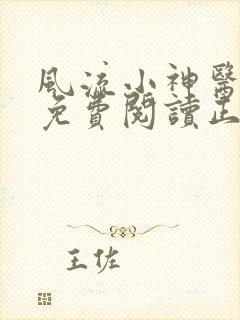 風流小神醫
免費閱讀正
王佐